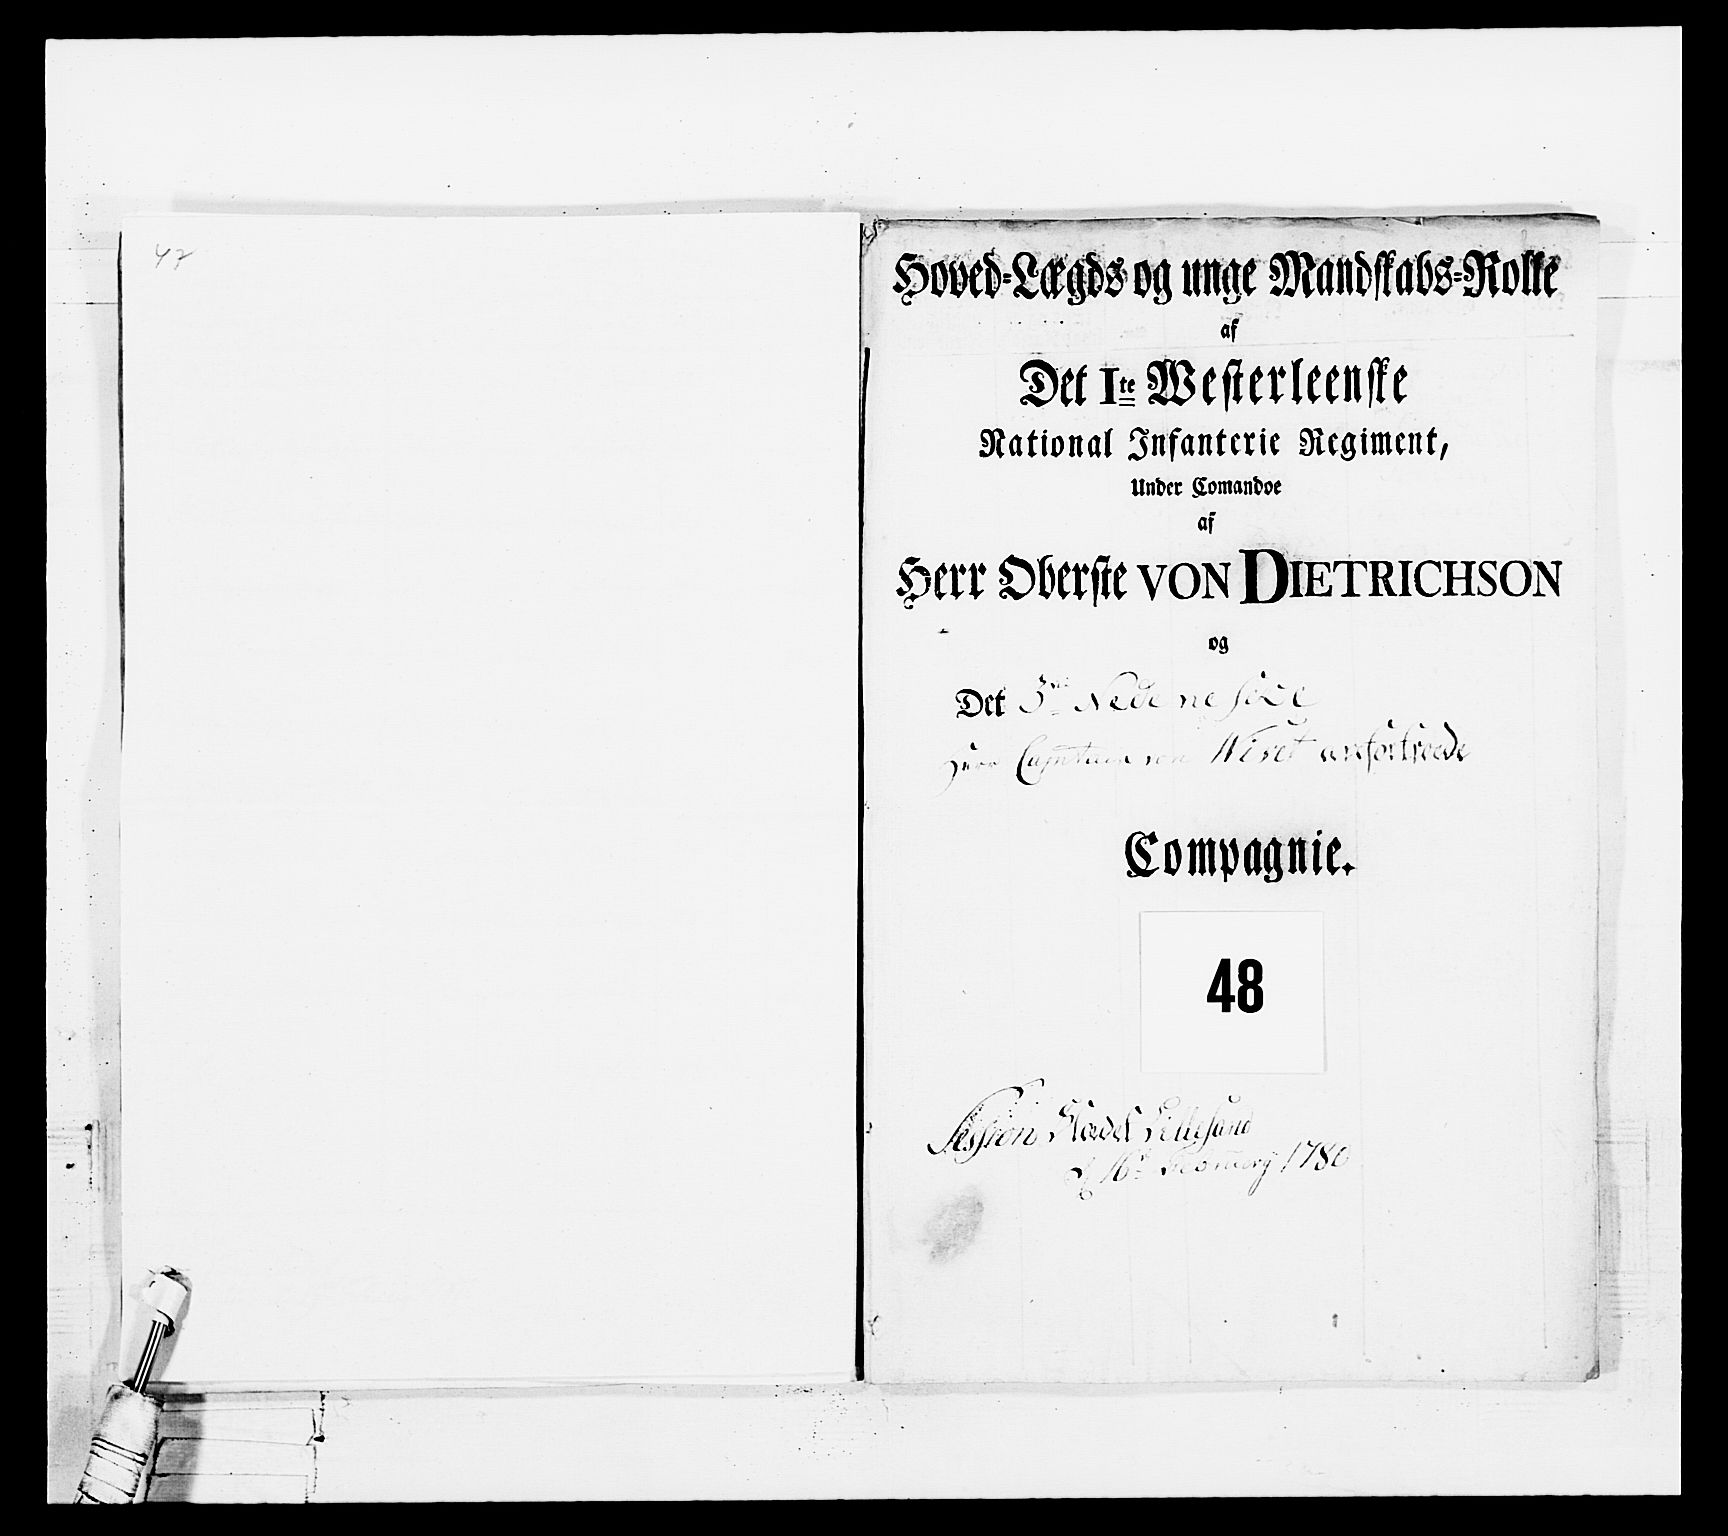 47
Hoved-Lægds og unge Mandskabs-Rolle
af
Det Ite Westerleenske
National Infanterie Regiment,
Under Comandoe
af
Herr Oberste VON DIETRICHSON
og
Det 3die Nedenesiske
Herr Capitain von anfortroede
Compagnie.
48
Session Lillesand
d 16 1780